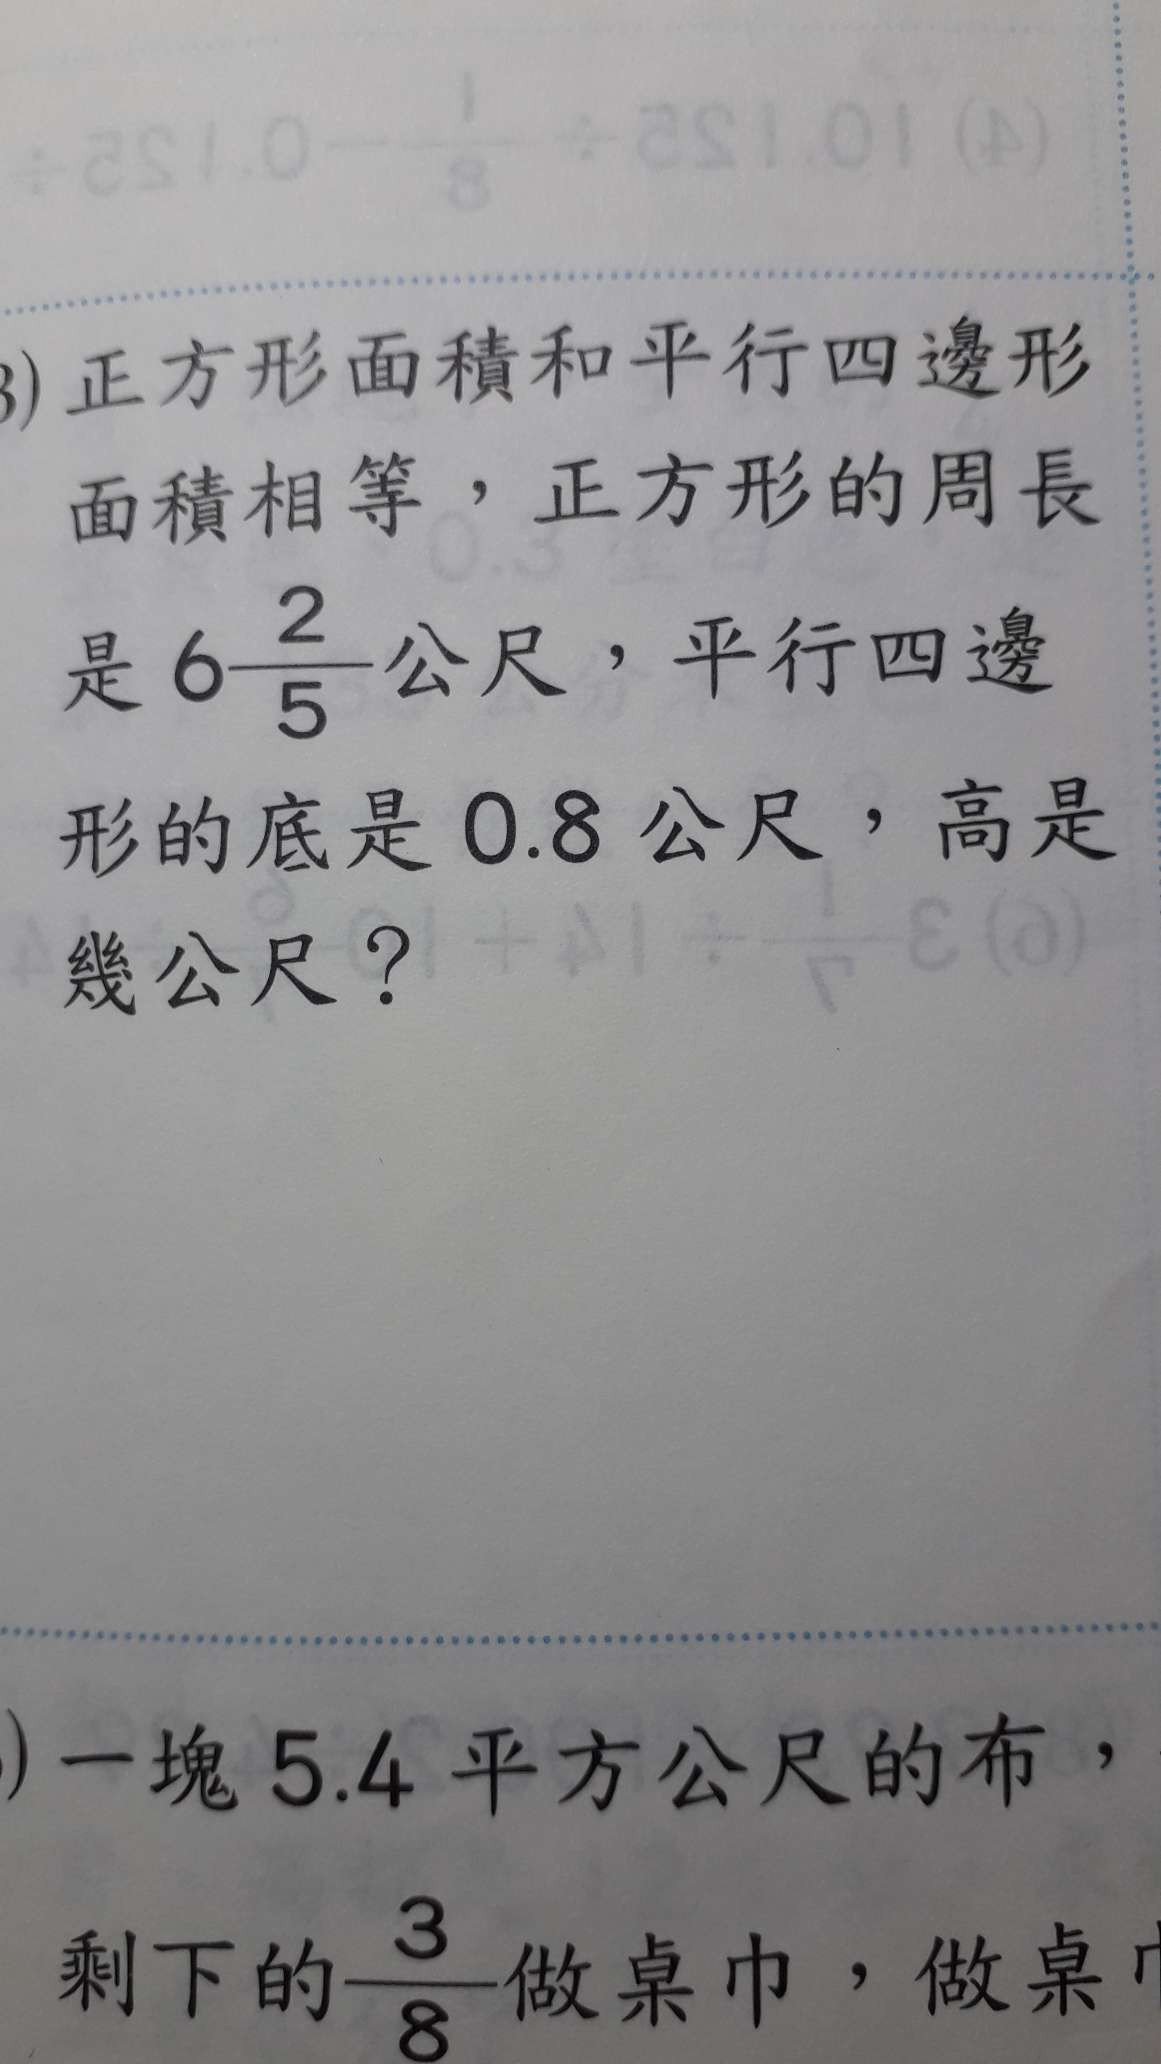 3) 正方形面積和平行四邊形
面積相等，正方形的周長
是 6 2/5 公尺，平行四邊
形的底是 0.8 公尺，高是
幾公尺？
) 一塊 5.4 平方公尺的布，
剩下的 3/8 做桌巾，做桌巾